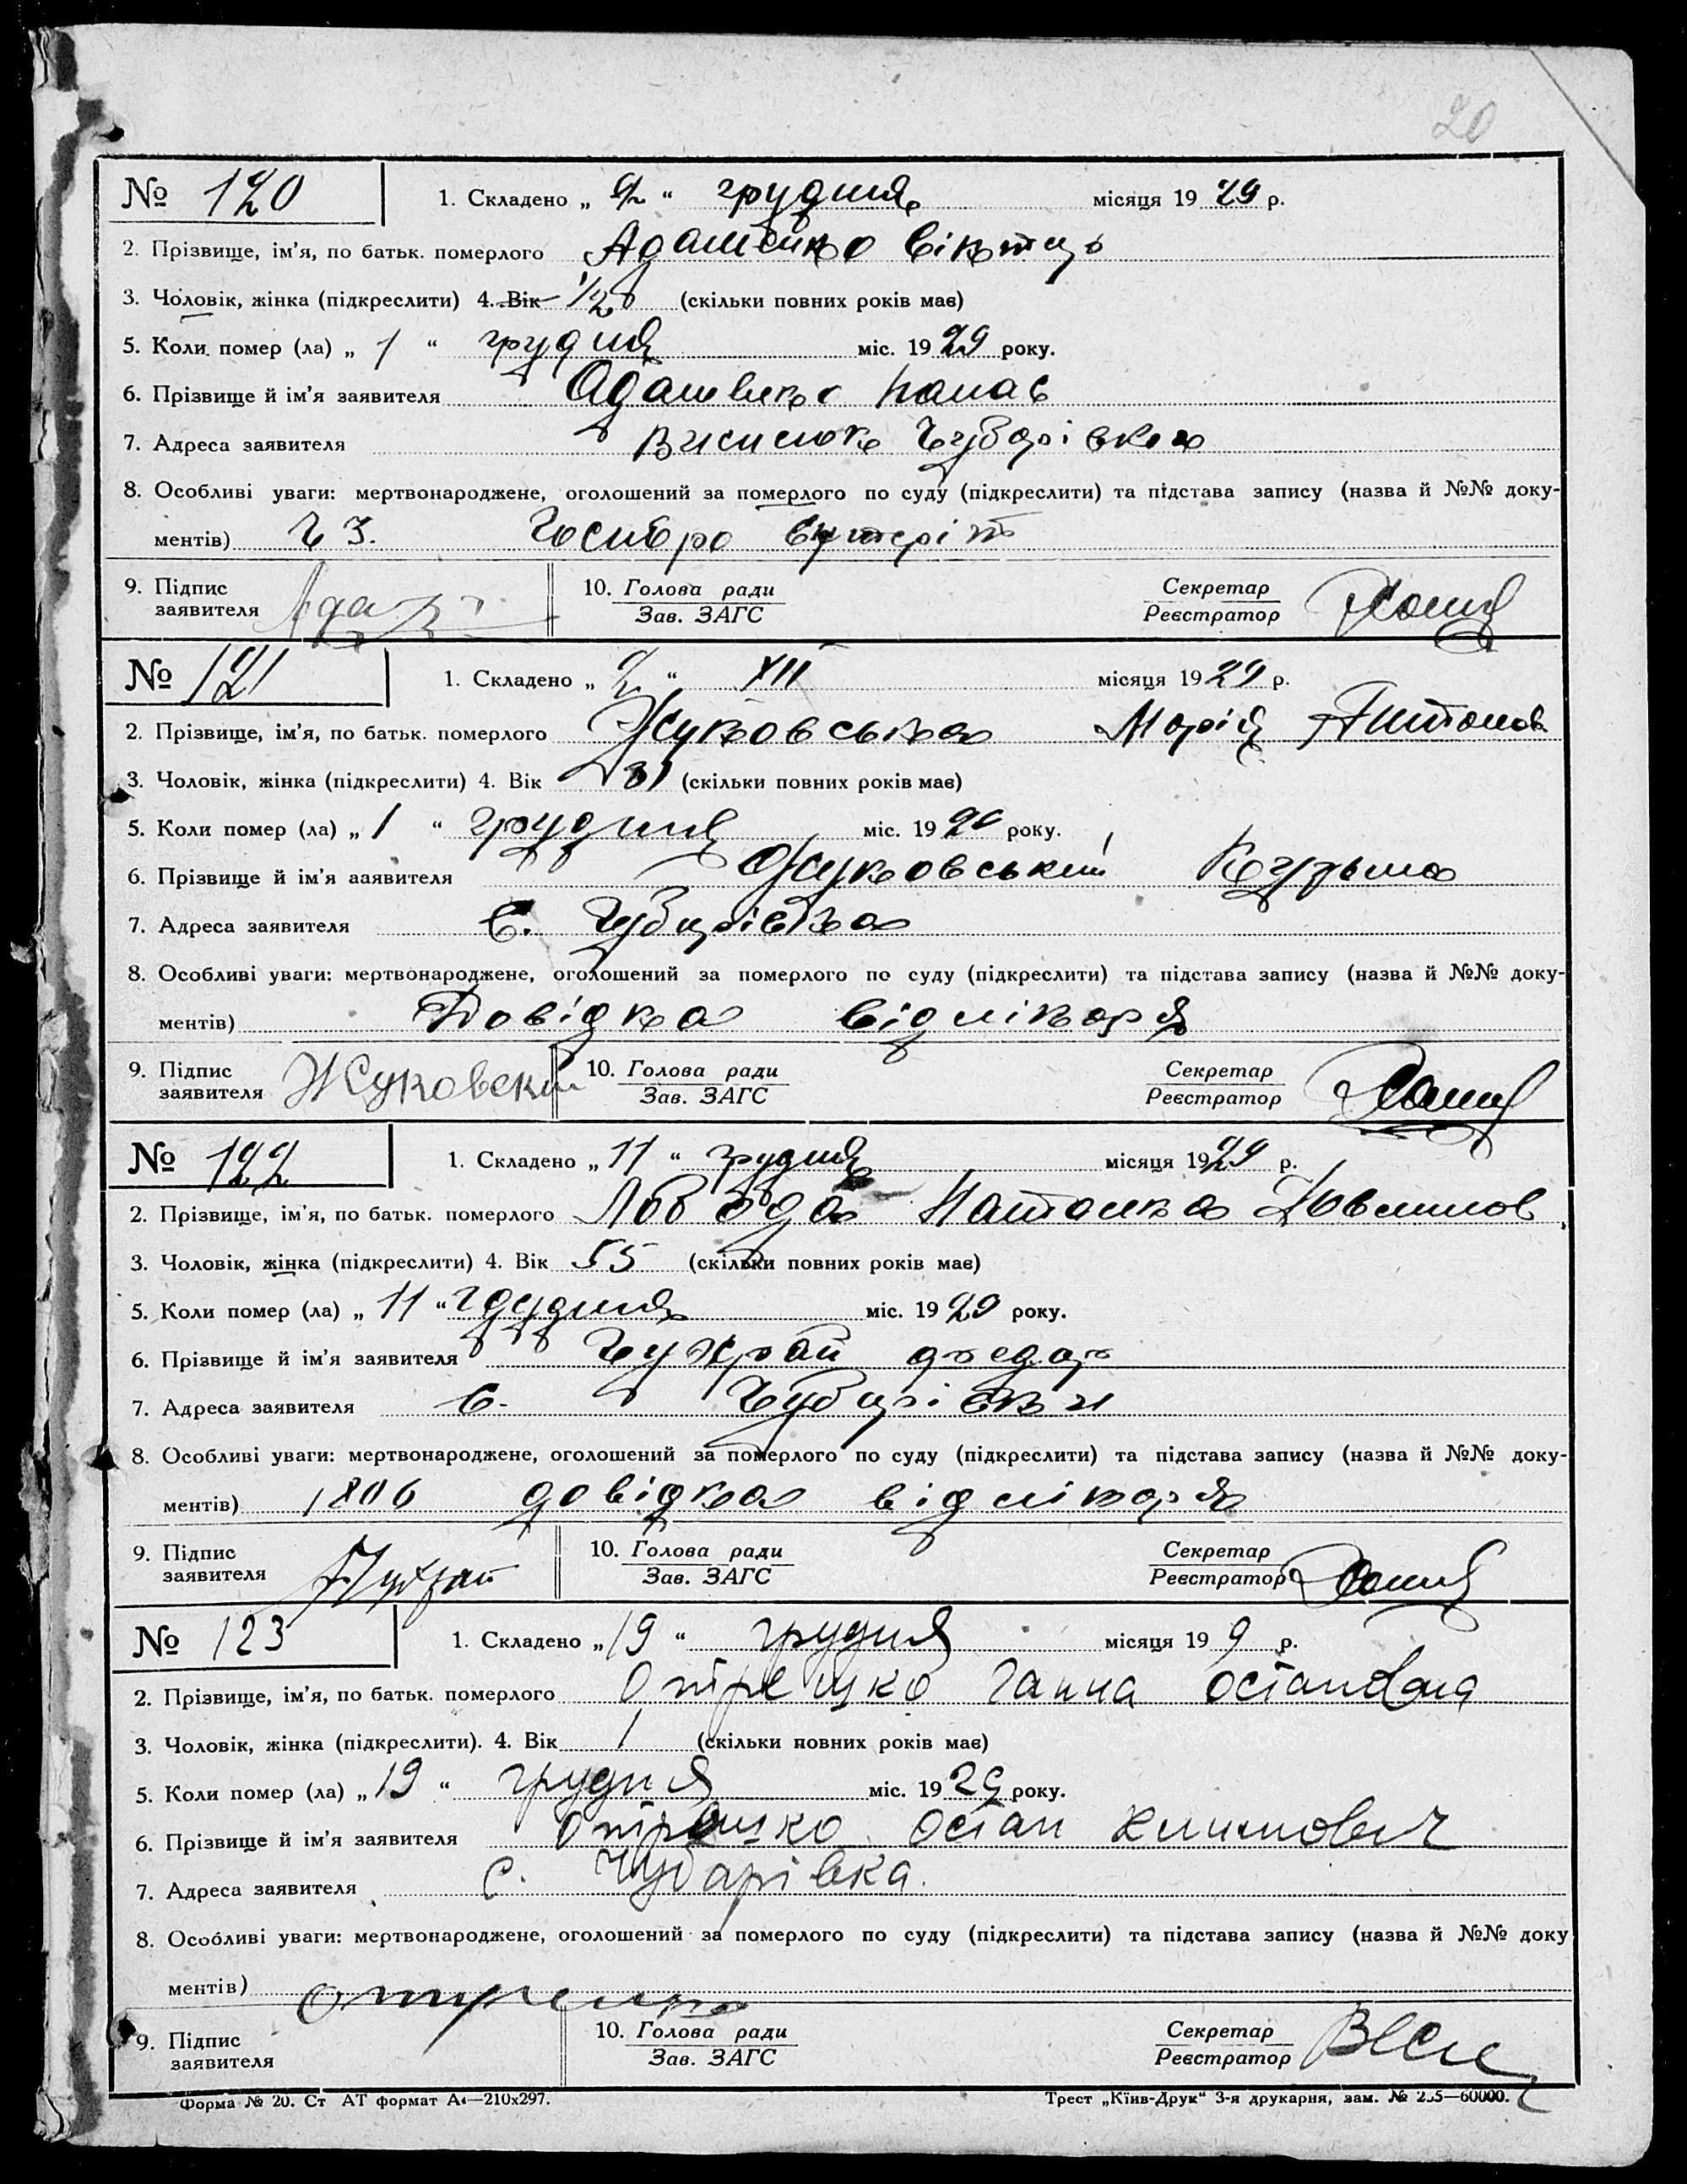 20
№ 120 1. Складено „ 2 “ грудня місяця 19 29 р.
2. Прізвище, ім'я, по батьк. померлого Адаменко Віктор
3. Чоловік, жінка (підкреслити) 4. Вік 1/2 (скільки повних років має)
5. Коли помер (ла) „ 1 “ грудня міс. 19 29 року.
6. Прізвище й ім'я заявителя Адаменко Панас
7. Адреса заявителя Висилок Чубарівка
8. Особливі уваги: мертвонароджене, оголошений за померлого по суду (підкреслити) та підстава запису (назва й №№ доку-
ментів)
9. Підпис
заявителя
10. Голова ради
Зав. ЗАГС
Секретар
Реєстратор
№ 121 1. Складено „ 2 “ XII місяця 19 29 р.
2. Прізвище, ім'я, по батьк. померлого Жуковська Марія Антонов
3. Чоловік, жінка (підкреслити) 4. Вік 31 (скільки повних років має)
5. Коли помер (ла) „ 1 “ грудня міс. 19 29 року.
6. Прізвище й ім'я заявителя Жуковський Кузьма
7. Адреса заявителя С. Чубарівка
8. Особливі уваги: мертвонароджене, оголошений за померлого по суду (підкреслити) та підстава запису (назва й №№ доку-
ментів) Довідка від лікаря
9. Підпис
заявителя Жуковский
10. Голова ради
Зав. ЗАГС
Секретар
Реєстратор
№ 122 1. Складено „ 11 “ грудня місяця 19 29 р.
2. Прізвище, ім'я, по батьк. померлого Лобода Наталка
3. Чоловік, жінка (підкреслити) 4. Вік 55 (скільки повних років має)
5. Коли помер (ла) „ 11 “ грудня міс. 19 29 року.
6. Прізвище й ім'я заявителя Чухрай Федар
7. Адреса заявителя С. Чубарівки
8. Особливі уваги: мертвонароджене, оголошений за померлого по суду (підкреслити) та підстава запису (назва й №№ доку-
ментів) 1806 довідка від лікаря
9. Підпис
заявителя
10. Голова ради
Зав. ЗАГС
Секретар
Реєстратор
№ 123 1. Складено „ 19 “ грудня місяця 19 9 р.
2. Прізвище, ім'я, по батьк. померлого Отрешко Ганна Остаповна
3. Чоловік, жінка (підкреслити). 4. Вік 1 (скільки повних років має)
5. Коли помер (ла) „ 19 “ грудня міс. 19 29 року.
6. Прізвище й ім'я заявителя Отрешко Остап Климович
7. Адреса заявителя с. Чубарівка.
8. Особливі уваги: мертвонароджене, оголошений за померлого по суду (підкреслити) та підстава запису (назва й №№ доку
ментів)
9. Підпис
заявителя
10. Голова ради
Зав. ЗАГС
Секретар
Реєстратор
Форма № 20. Ст АТ формат А4—210х297. Трест „Київ-Друк“ 3-я друкарня, зам. № 235—60000.